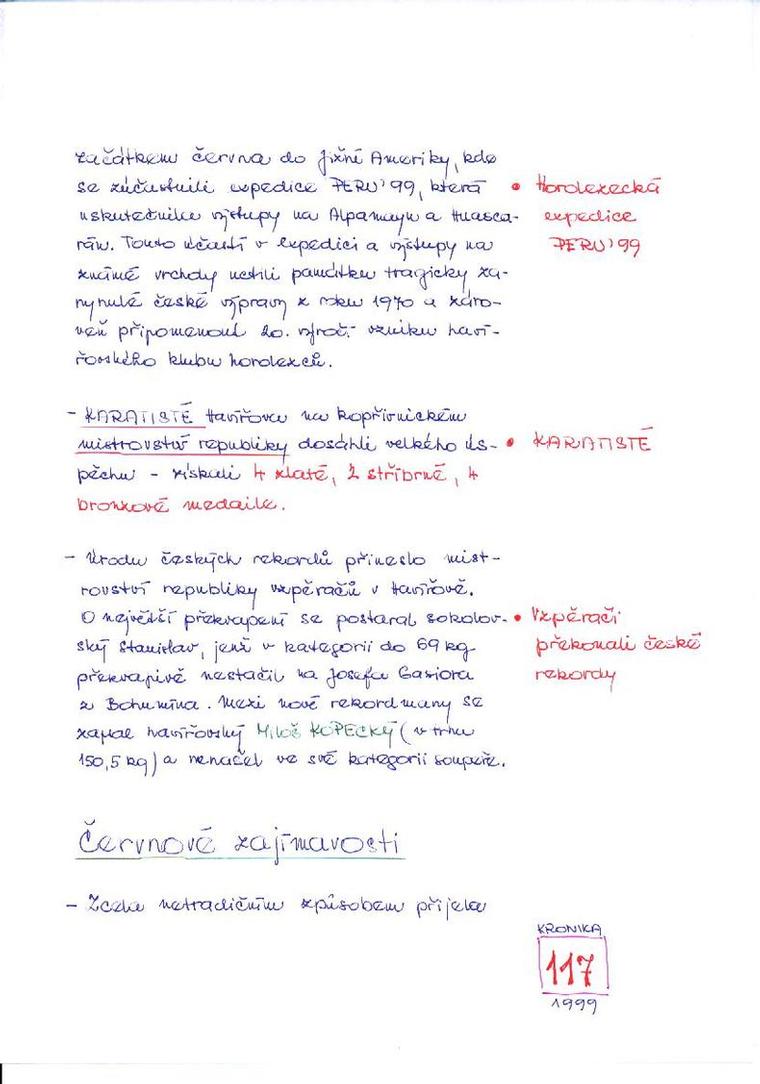 začátkem června do Jižní Ameriky, kde
se zúčastnili expedice PERU'99, která
uskutečnila výstupy na Alpamayu a Huasca-
rán. Touto účastí v expedici a výstupy na
známé vrchdy uctili památku tragicky za-
hynulé české výpravy z roku 1970 a záro-
veň připomenout 20. výročí vzniku haví-
řovského klubu horolezců.
• Horolezecká
expedice
PERU'99
- KARATISTÉ Havířova na kopřivnickém
mistrovství republiky dosáhli velkého ús-
pěchu - získali 4 zlaté, 2 stříbrné, 4
bronzové medaile.
• KARATISTÉ
- Úrodu českých rekordů přineslo mist-
rovství republiky vzpěračů v Havířově.
O největší překvapení se postaral sokolov-
ský Stanislav, jenž v kategorii do 69 kg
překvapivě nestačil na Josefa Gasiora
z Bohumína. Mezi nové rekordmany se
zapsal havířovský Miloš KOPECKÝ (v trhu
150,5 kg) a nenašel ve své kategorii soupeře.
• Vzpěrači
překonali české
rekordy
Červnové zajímavosti
- Zcela netradičním způsobem přijela
KRONIKA
117
1999